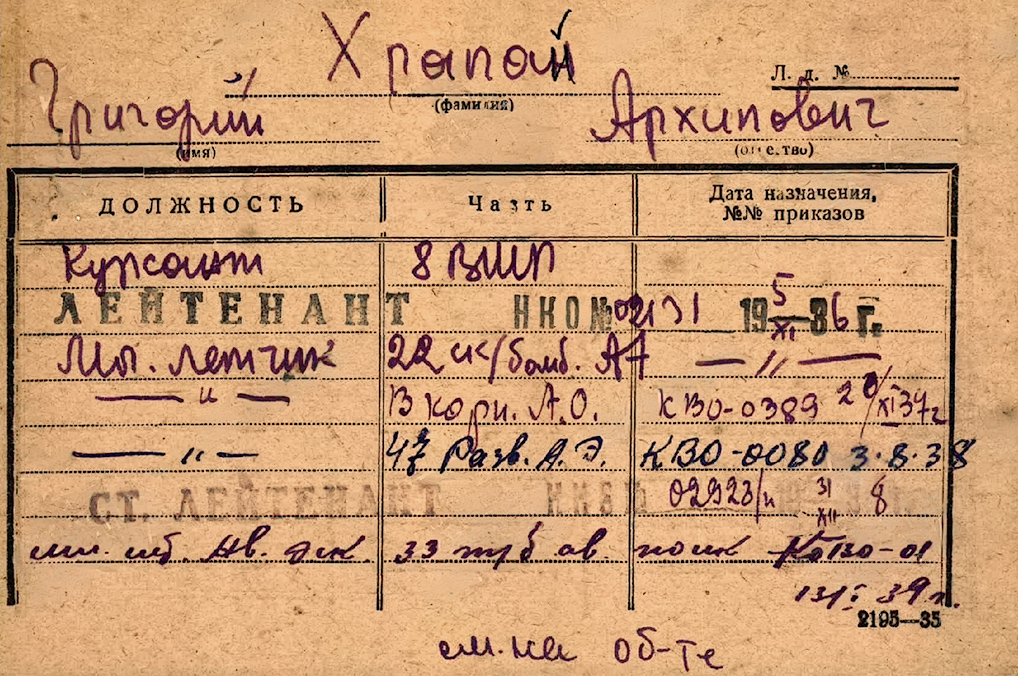 Храпай
Л. д. №
(фамилия)
Григорий Архипович
(имя) (отчество)
ДОЛЖНОСТЬ Часть Дата назначения, №№ приказов
Курсант 8 ВШП
ЛЕЙТЕНАНТ НКО № 02131 5/XI 1936 г.
Мл. летчик 22 ск/бомб. — 〃 —
— 〃 — В корп. А.О. КВО-0389 XI 37 г
— 〃 — 47 Разв. А.Э. КВО-0080 3.8.38
СТ. ЛЕЙТЕНАНТ 02923/п 31/XII 8
мл. шт. ав. эск 33 ав полк КОВО-01
I 39 г.
2195—35
см. на об-те